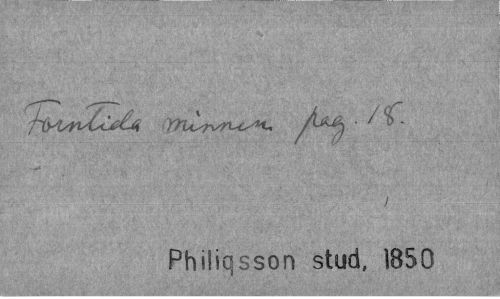 Forntida minnen pag. 18.
Philiqsson stud, 1850